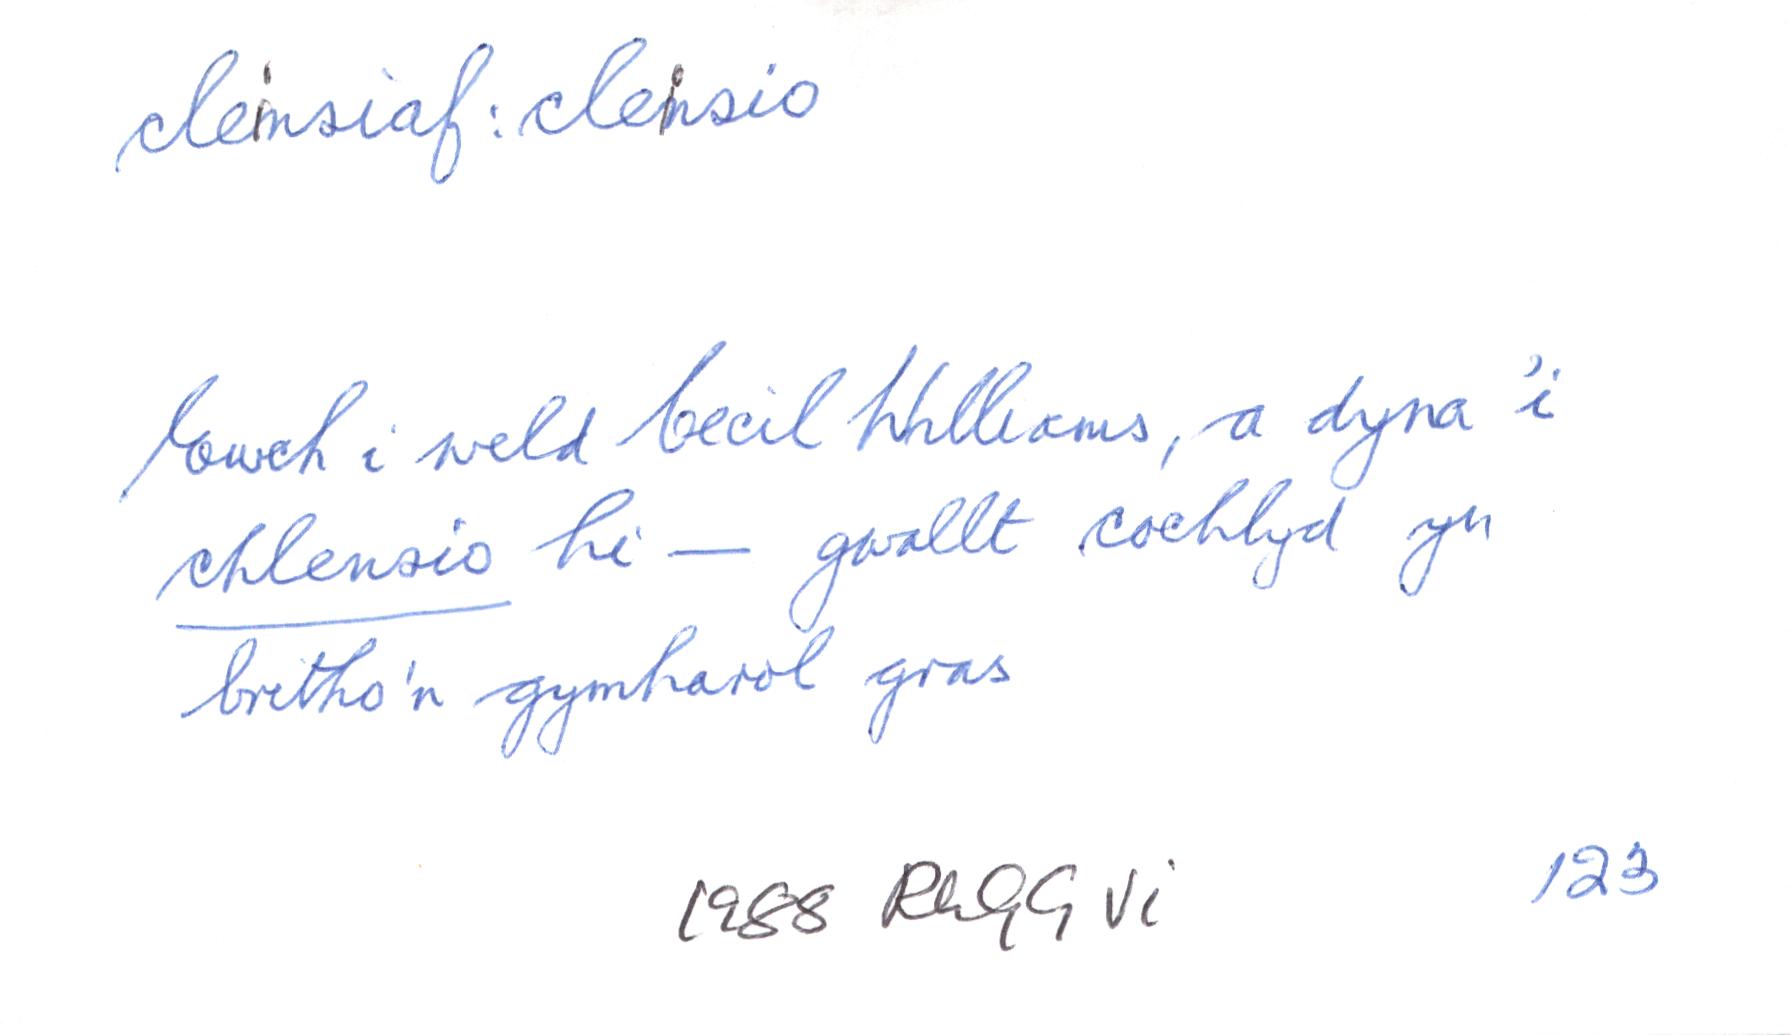 cleinsiaf: cleinsio
Ewch i weld Cecil Williams, a dyna 'i
chlensio hi — gwallt cochlyd yn
britho'n gymharol gras
1988 RhGG vi 123